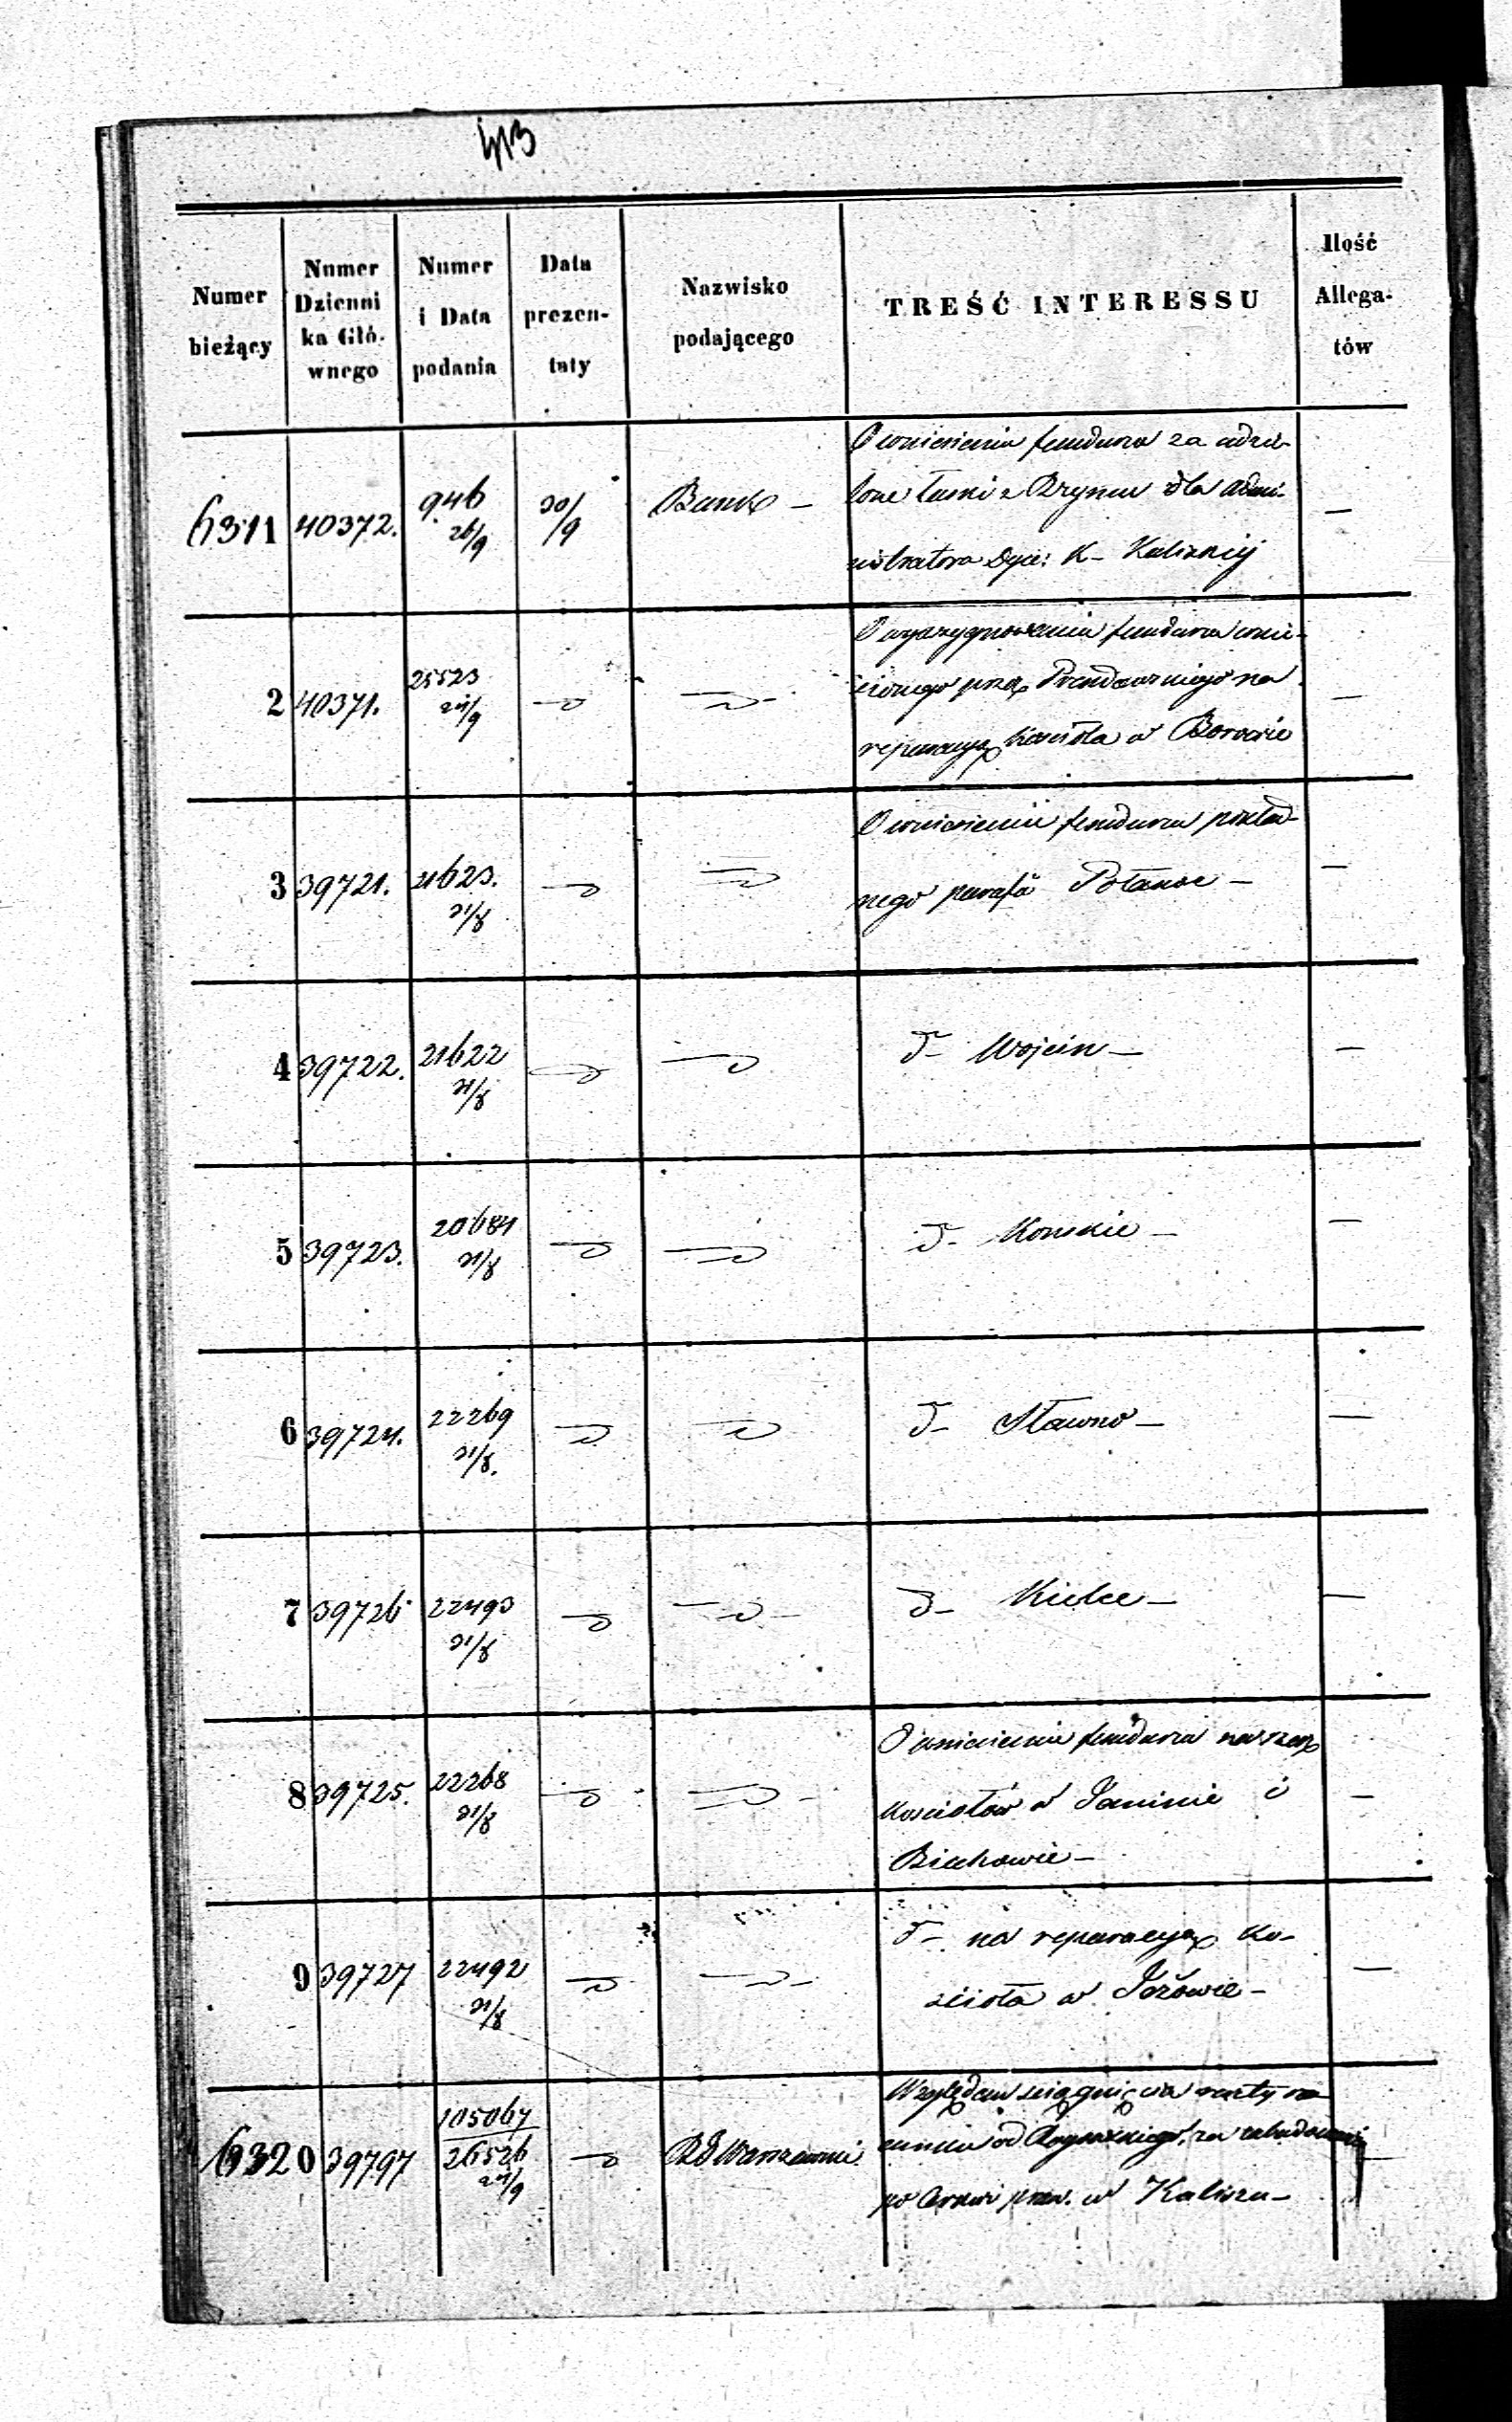 413
Numer bieżący
Numer Dzienni ka Głó- wnego
Numer i Data podania
Data prezen- taty
Nazwisko podającego
TREŚĆ INTERESSU
Ilość Allega- tów
6311 40372. 946 26/9 30/9 Bank – O wniesieniu funduszu za udzie- –
lone łaski z Rzymu dla Admi-
nistratora Dyec: K– Kaliskiej
2 40371. 25523 24/9 O wyasygnowaniu funduszu wnie- –
sionego przez na
reperacyą kościoła w Borowie
3 39721. 21623. 31/8 O wniesieniu funduszu poklad- –
nego parafii –
4 39722. 21622 31/8 d– Wojcin – –
5 39723. 20684 31/8 d– Konskie – –
6 39724. 22269 31/8. d– Sławno – –
7 39726 22493 31/8 d– Kielce – –
8 39725. 22268 31/8 O wniesieniu funduszu na rzecz –
kościołów w Janinie i
Biechowie –
9 39727 22492 31/8 d– na reperacyą ko- –
ścioła w Jeżowie –
6320 39797 105067 26526 24/9 RG Warszawski Względem ściągnięcia –
od za zabudowania
po w Kaliszu –